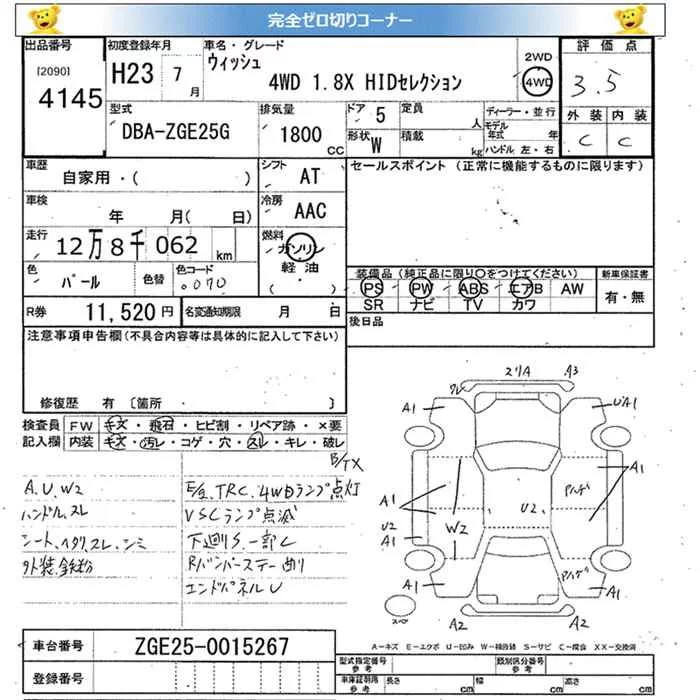 完全ゼロ切りコーナー
出品番号 [2090] 4145
初度登録年月 H23 7月
車名・グレード ウィッシュ 4WD 1.8X HIDセレクション
2WD 4WD
評価点 3.5
外装 内装
C C
型式 DBA-ZGE25G
排気量 1800 CC
ドア 5 形状 W
定員 人 積載 kg
ディーラー・並行
モデル年式 年
ハンドル 左・右
車歴 自家用・( )
シフト AT
セールスポイント (正常に機能するものに限ります)
車検 年 月( 日)
冷房 AAC
走行 12万8千062 km
燃料 ガソリン 軽油 ( ・ )
色 パール 色替 色コード 070
装備品 (純正品に限り○をつけてください) 新車保証書
PS PW ABS エアB AW
SR ナビ TV カワ
有・無
R券 11,520円 名変通知期限 月 日
後日品
注意事項申告欄(不具合内容等は具体的に記入して下さい)
修復歴 有 〔箇所 ・
検査員記入欄
FW キズ・飛石・ヒビ割・リペア跡・×要
内装 キズ・汚レ・コゲ・穴・スレ・キレ・破レ
A.U.W2
ハンドル.スレ
シート.スレ.シミ
外装.鉄粉
TRC.4WDランプ点灯
VSCランプ点滅
下廻りS.一部C
Rバンパーステー曲り
エンドパネルU
A3
A1
U A1
A1
A1
U2
W2
U2
A1
A1
A1
A2
A2
車台番号 ZGE25-0015267
登録番号
A-キズ E-エクボ U-凹み W-補修跡 S-サビ C-腐食 XX-交換済
型式指定番号 参考 類別区分番号 参考
車庫証明用 参考 長さ cm 幅 cm 高さ cm